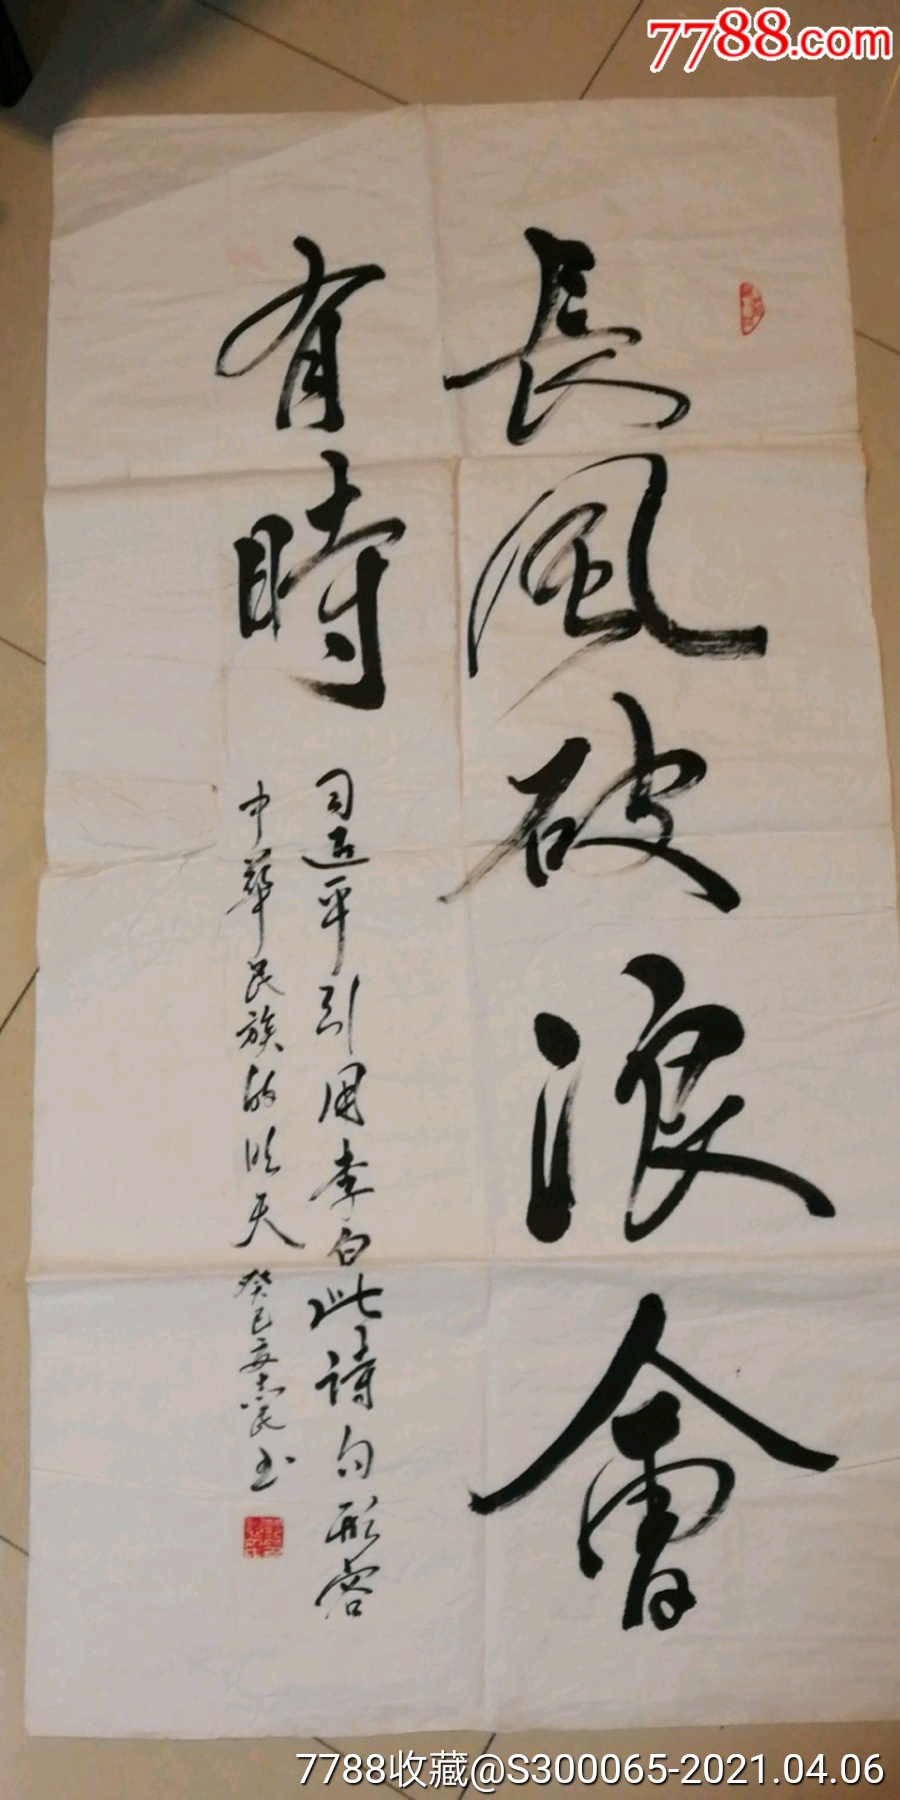 7788.com
長風破浪會
有時
习近平引用李白此詩句形容
中華民族的明天 癸巳 志民书
7788收藏@S300065-2021.04.06